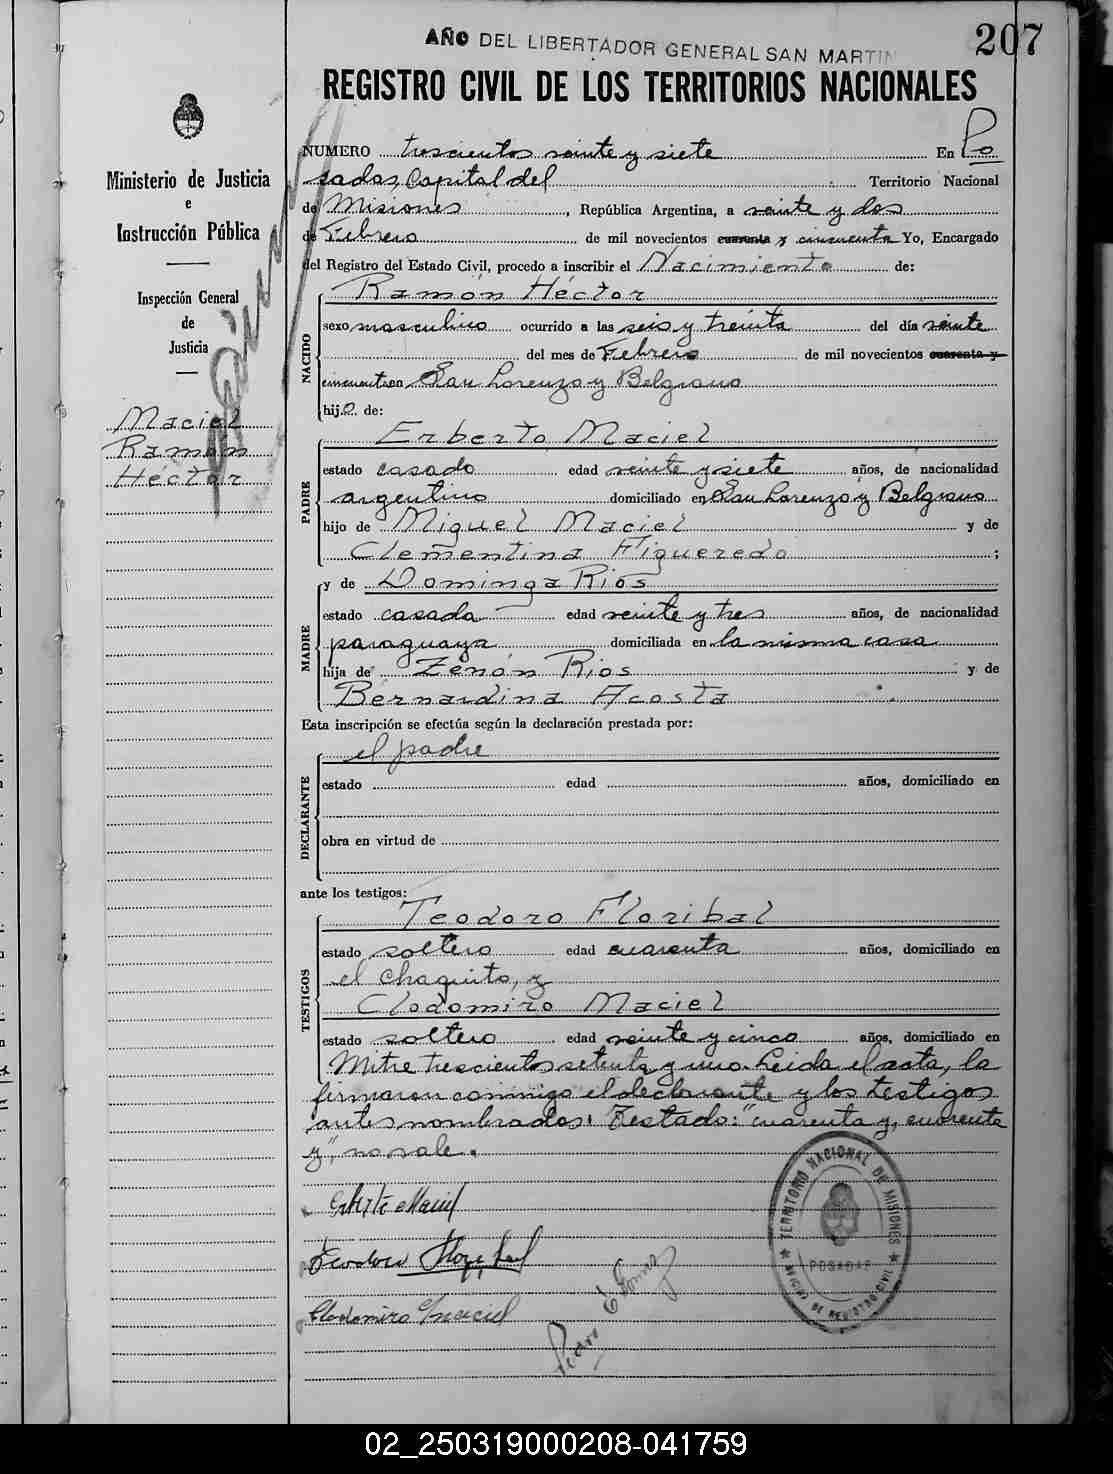 AÑO DEL LIBERTADOR GENERAL SAN MARTIN
207
REGISTRO CIVIL DE LOS TERRITORIOS NACIONALES
Ministerio de Justicia
e
Instrucción Pública
Inspección General
de
Justicia
Maciel
Ramón
Héctor
NUMERO trescientos veinte y siete En Po
sadas, Capital del Territorio Nacional
de Misiones, República Argentina, a veinte y dos
de Febrero de mil novecientos cuarenta y cincuenta Yo, Encargado
del Registro del Estado Civil, procedo a inscribir el Nacimiento de:
NACIDO
Ramón Héctor
sexo masculino ocurrido a las seis y treinta del día veinte
del mes de Febrero de mil novecientos cuarenta y
cincuenta en San Lorenzo y Belgrano
hijo de:
PADRE
Erberto Maciel
estado casado edad veinte y siete años, de nacionalidad
argentino domiciliado en San Lorenzo y Belgrano
hijo de Miguel Maciel y de
Clementina Figueredo ;
MADRE
y de Dominga Rios
estado casada edad veinte y tres años, de nacionalidad
paraguaya domiciliada en la misma casa
hija de Zenón Rios y de
Bernardina Acosta
Esta inscripción se efectúa según la declaración prestada por:
DECLARANTE
el padre
estado edad años, domiciliado en
obra en virtud de
ante los testigos:
TESTIGOS
Teodoro Floribal
estado soltero edad cuarenta años, domiciliado en
el Chaquito, y
Clodomiro Maciel
estado soltero edad veinte y cinco años, domiciliado en
Mitre trescientos setenta y uno. Leida el acta, la
firmaron conmigo el declarante y los testigos
antes nombrados. Testado: "cuarenta y, cuarenta
y", no vale.
Maciel
Teodoro
Clodomiro Maciel
Pedro
TERRITORIO NACIONAL DE MISIONES
POSADAS
OFICINA DE REGISTRO CIVIL
02_250319000208-041759